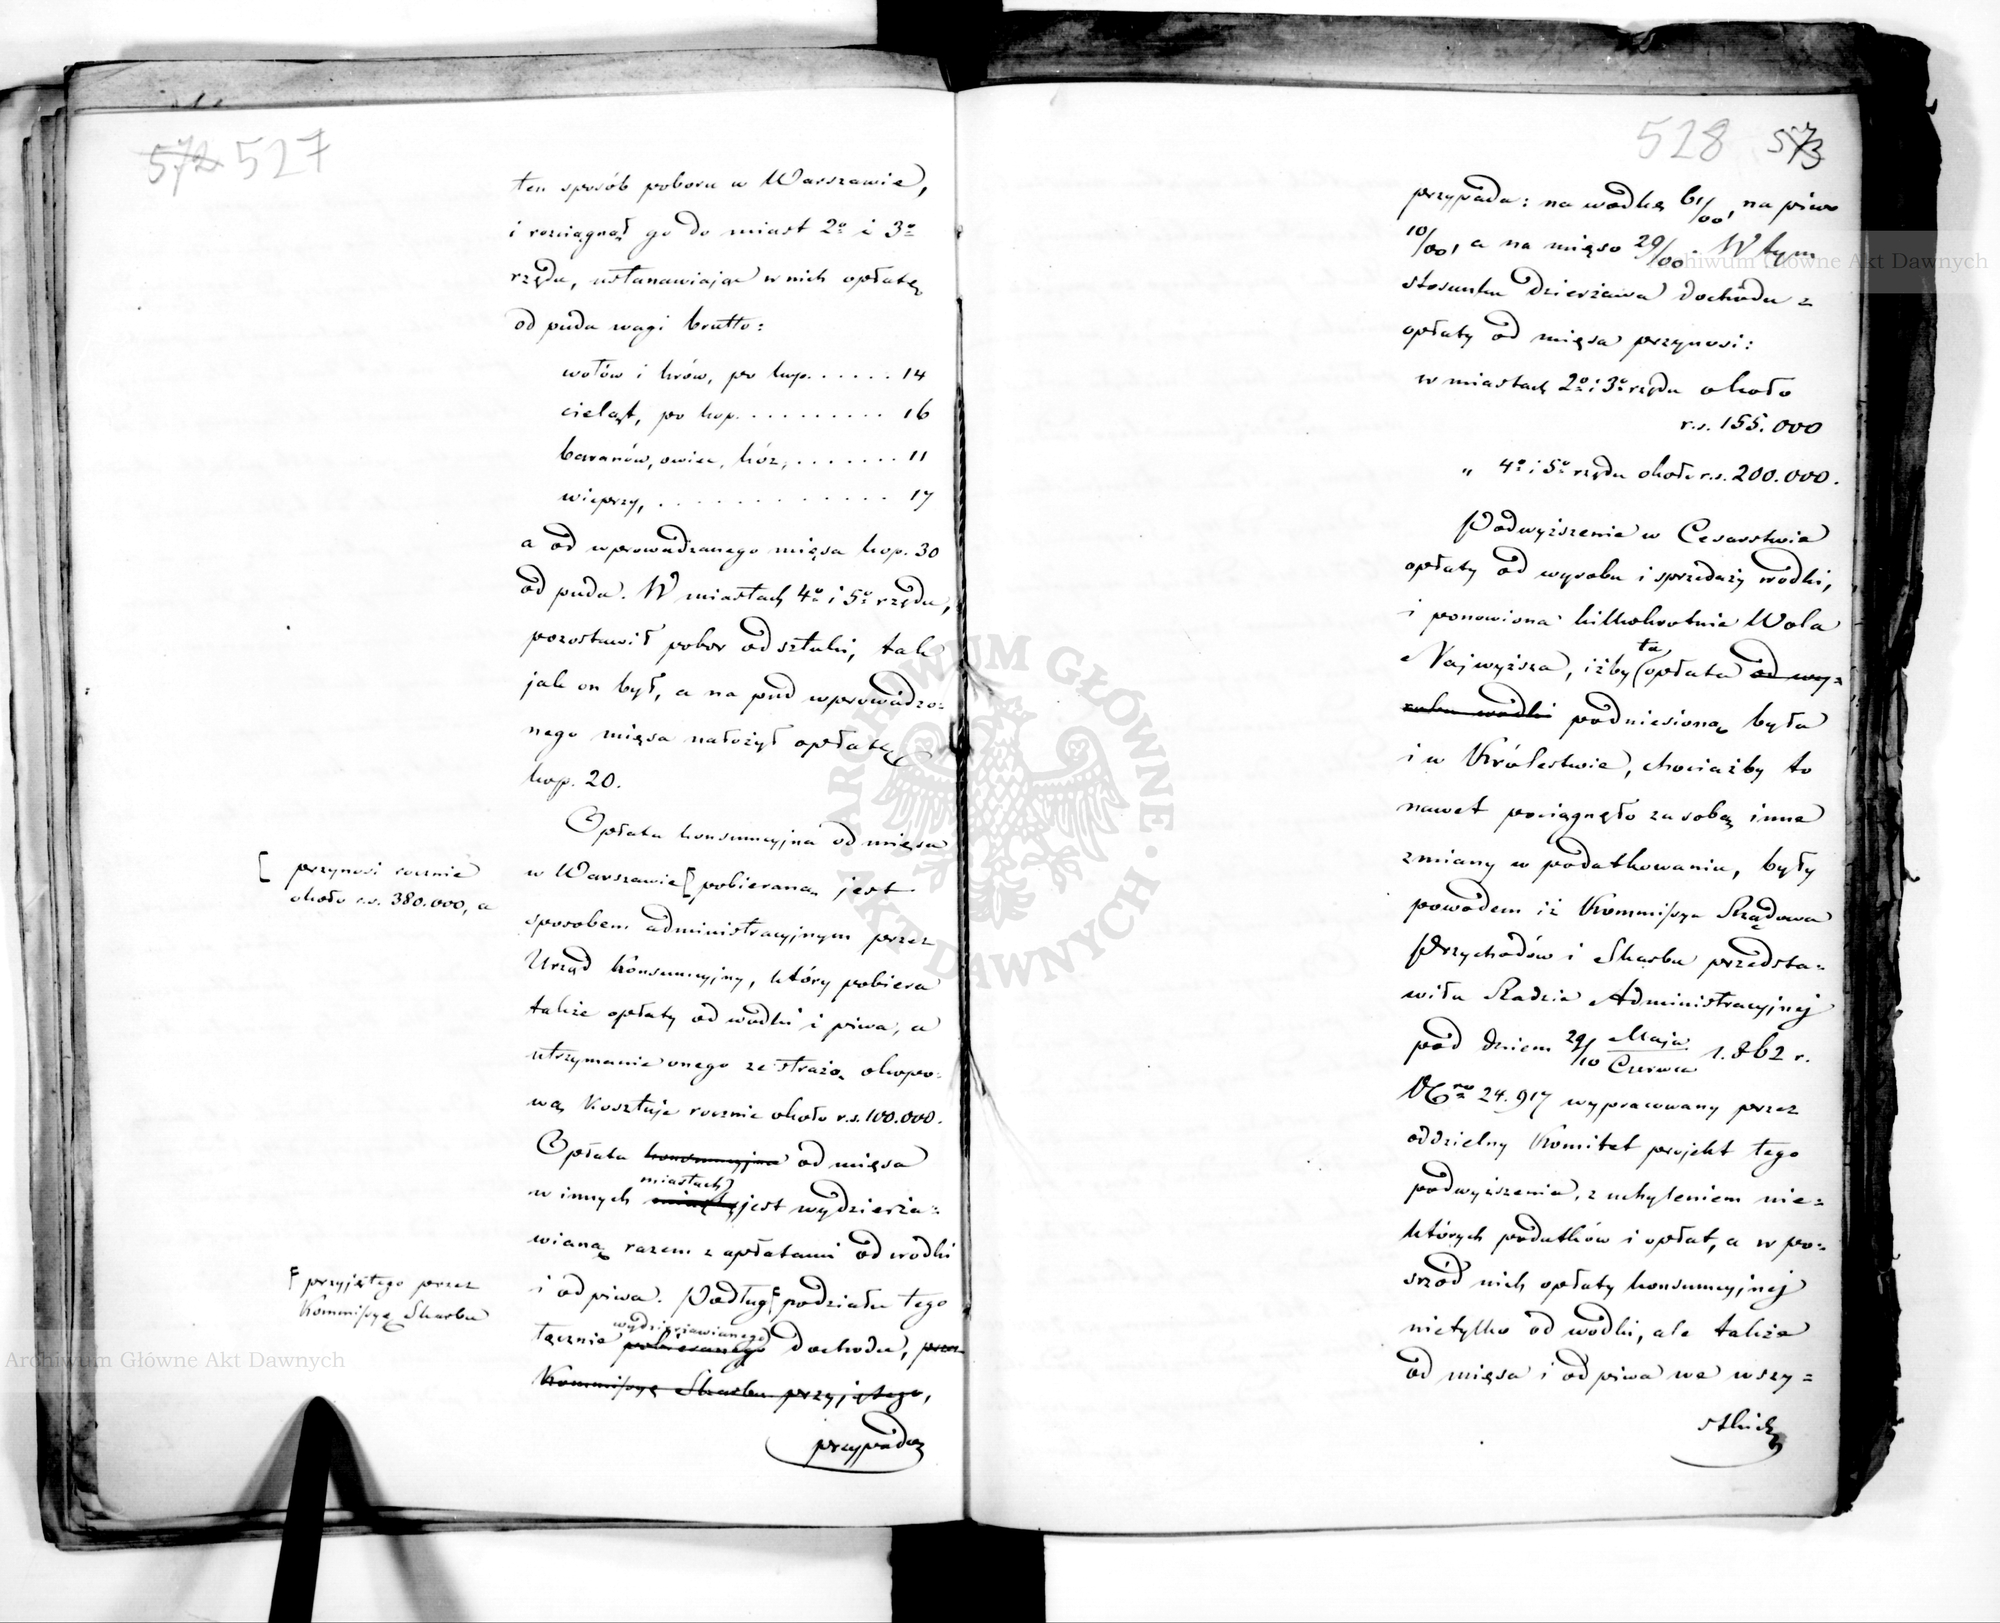 572 527
ten sposób poboru w Warszawie,
i rozciągnął go do miast 2º i 3º
rzędu, ustanawiając w nich opłatę
od puda wagi brutto:
wołów i krów, po kop. . . . . . 14
cieląt, po kop. . . . . . . . . . 16
baranów, owiec, kóz, . . . . . . . 11
wieprzy, . . . . . . . . . . . . 17
a od wprowadzanego mięsa kop. 30
od puda. W miastach 4º i 5º rzędu,
pozostawił pobór od sztuki, tak
jak on był, a na pud wprowadzo-
nego mięsa nałożył opłatę
kop. 20.
Opłata konsumcyjna od mięsa
[ przynosi rocznie
około r.s. 380.000, a
w Warszawie [ pobierana jest
sposobem administracyjnym przez
Urząd konsumcyjny, który pobiera
także opłaty od wódki i piwa, a
utrzymanie onego ze strażą okopo-
wą kosztuje rocznie około r.s. 100.000.
Opłata konsumcyjna od mięsa
w innych miastach jest wydzierża-
wianą razem z opłatami od wódki
i od piwa. Podług [ podziału tego
[ przyjętego przez
Kommissyę Skarbu
wydzierżawianego
łącznie pobieranego dochodu, przez
Kommissyę Skarbu przyjętego,
przypada
528 573
przypada: na wódkę 61/00, na piwo
10/00, a na mięso 29/00. W tym
stosunku dzierżawa dochodu z
opłaty od mięsa przynosi:
w miastach 2º i 3º rzędu około
r.s. 155.000
" 4º i 5º rzędu około r.s. 200.000.
Podwyższenie w Cesarstwie
opłaty od wyrobu i sprzedaży wódki,
i ponowiona kilkokrotnie Wola
ta
Najwyższa, iżby opłata od wy-
robu wódki podniesioną była
i w Królestwie, chociażby to
nawet pociągnęło za sobą inne
zmiany w podatkowaniu, były
powodem iż Kommissya Rządowa
Przychodów i Skarbu przedsta-
wiła Radzie Administracyjnej
pod dniem 29/10 Maja/Czerwca 1862 r.
Nro 24.917 wypracowany przez
oddzielny Komitet projekt tego
podwyższenia, z uchyleniem nie-
których podatków i opłat, a w po-
śród nich opłaty konsumcyjnej
nietylko od wódki, ale także
od mięsa i od piwa we wszy-
stkich
ARCHIWUM GŁÓWNE AKT DAWNYCH
Archiwum Główne Akt Dawnych
Archiwum Główne Akt Dawnych